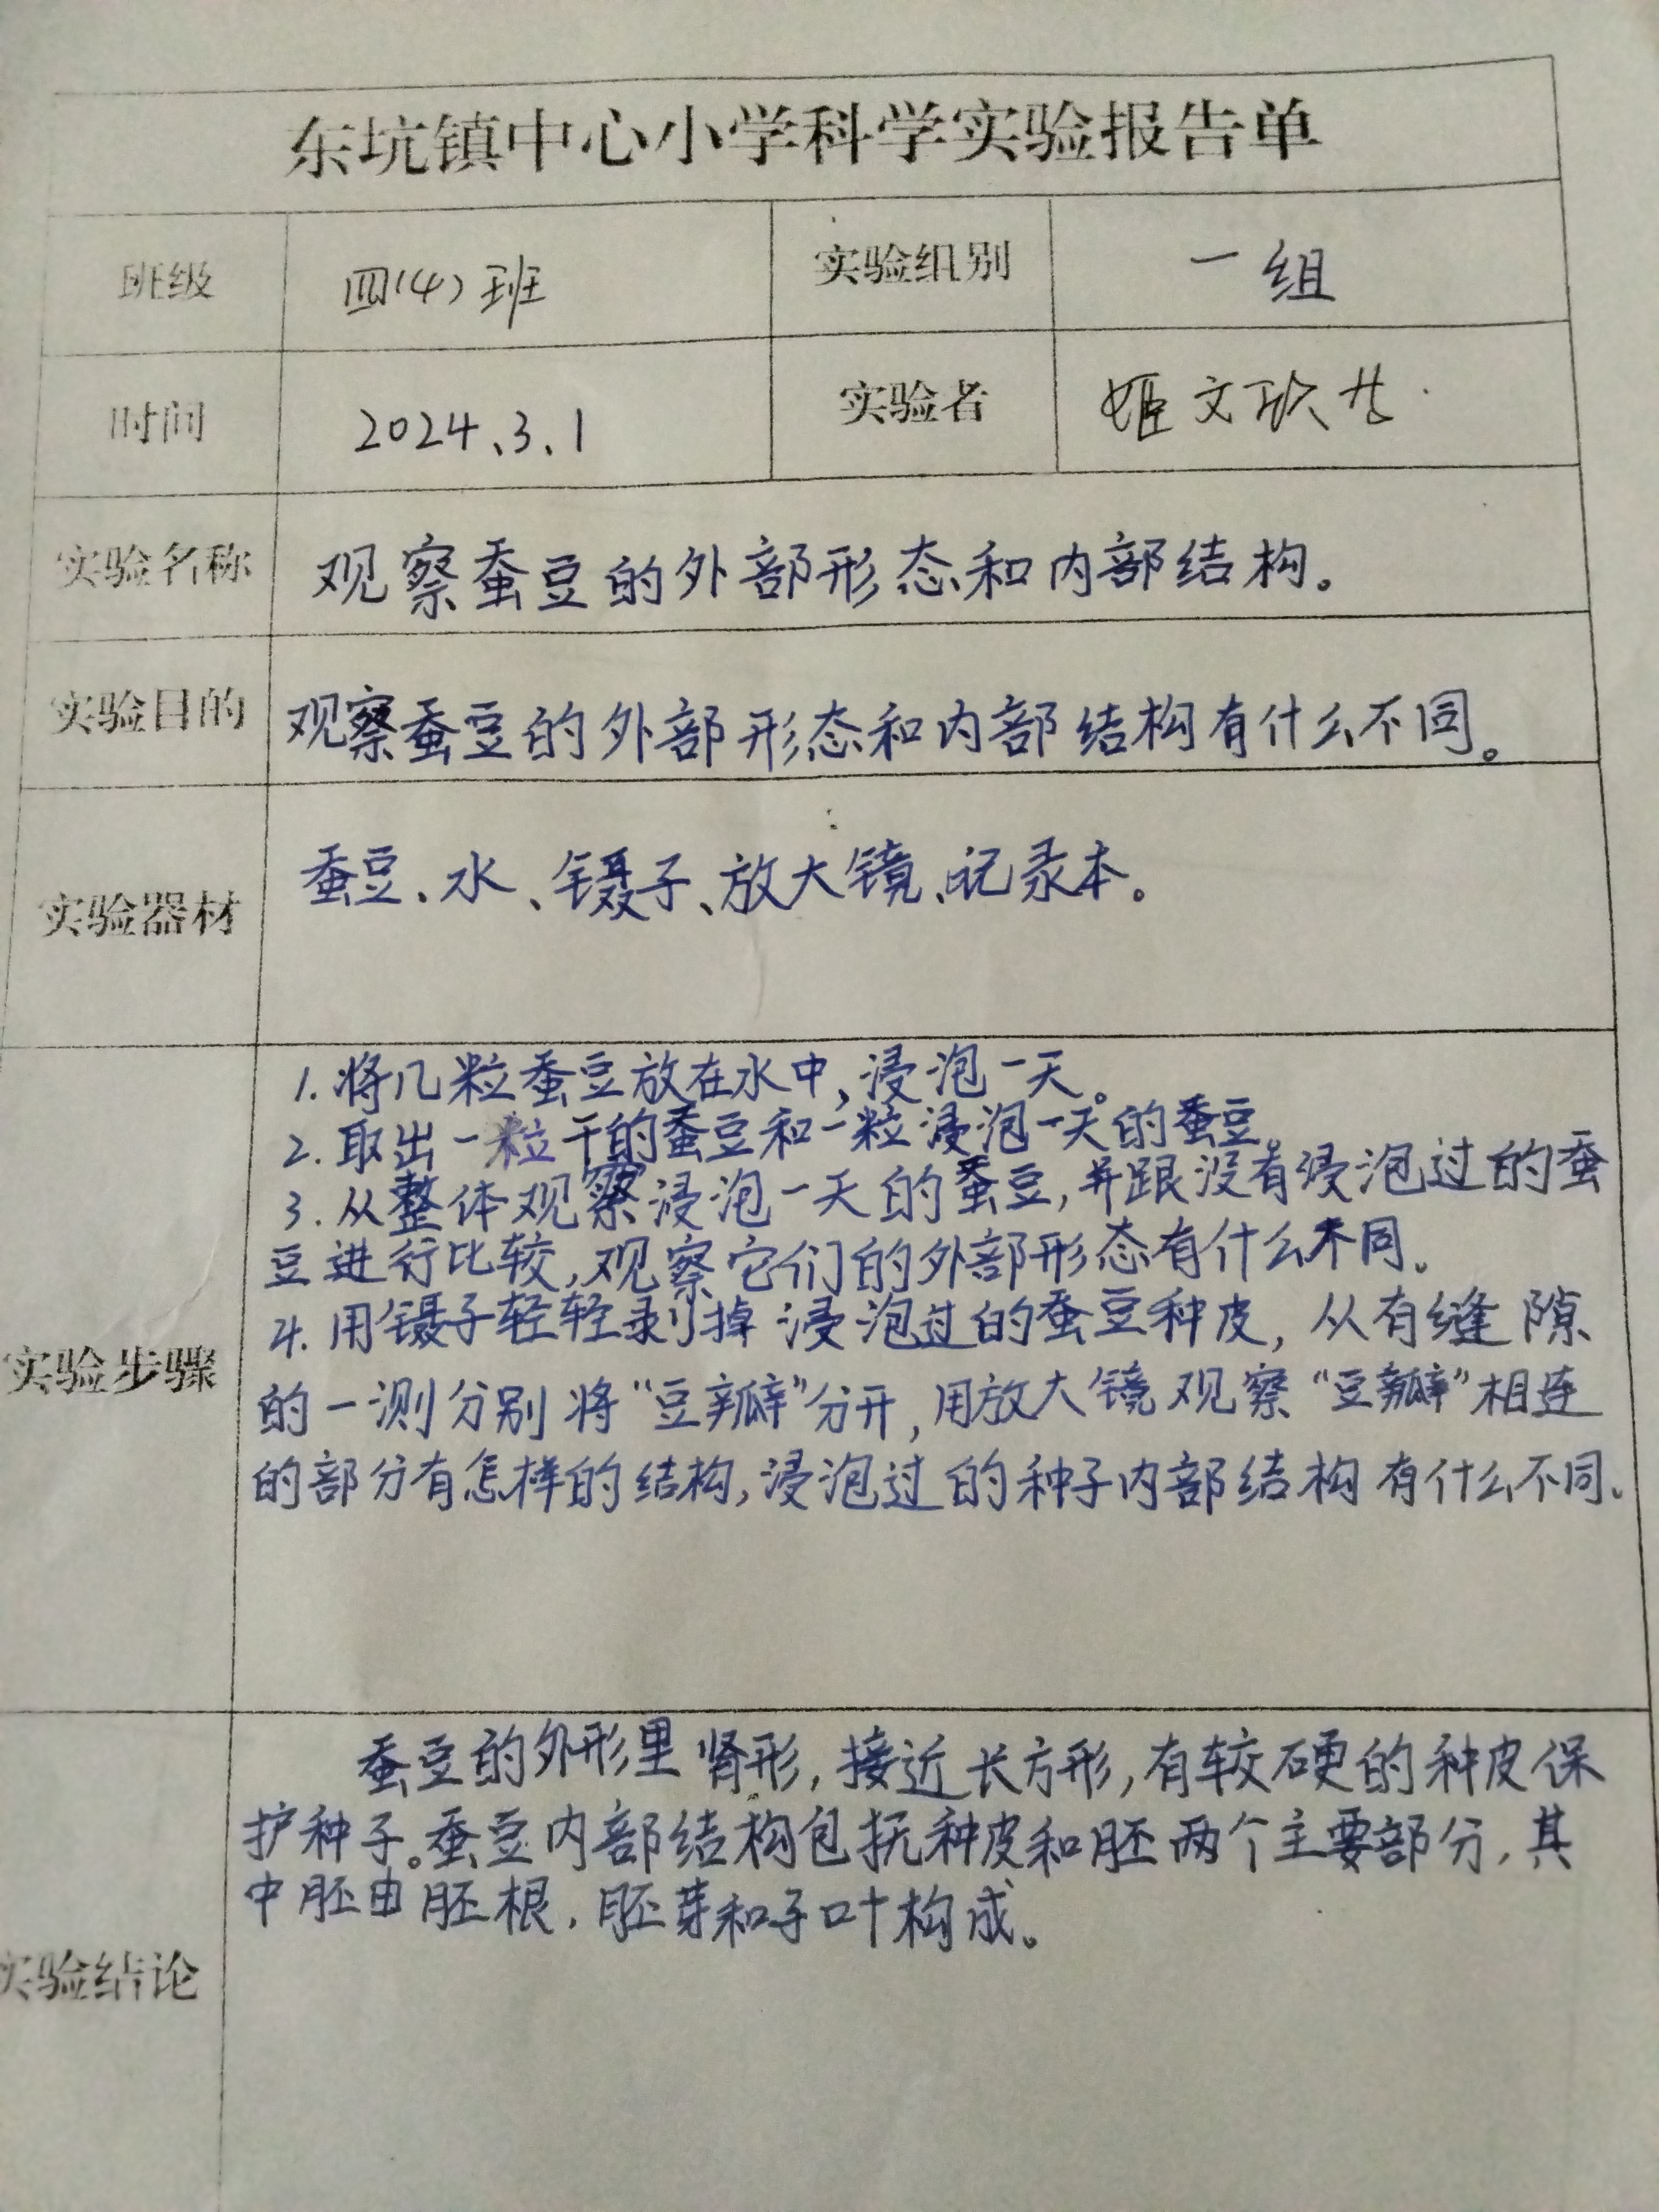 东坑镇中心小学科学实验报告单
班级 四(4)班 实验组别 一组
时间 2024、3、1 实验者 姬文
实验名称 观察蚕豆的外部形态和内部结构。
实验目的 观察蚕豆的外部形态和内部结构有什么不同。
实验器材 蚕豆、水、镊子、放大镜、记录本。
实验步骤
1.将几粒蚕豆放在水中,浸泡一天。
2.取出一粒干的蚕豆和一粒浸泡一天的蚕豆。
3.从整体观察浸泡一天的蚕豆,并跟没有浸泡过的蚕
豆进行比较,观察它们的外部形态有什么不同。
4.用镊子轻轻剥掉浸泡过的蚕豆种皮,从有缝隙
的一测分别将“豆瓣”分开,用放大镜观察“豆瓣”相连
的部分有怎样的结构,浸泡过的种子内部结构有什么不同。
实验结论
蚕豆的外形里肾形,接近长方形,有较硬的种皮保
护种子。蚕豆内部结构包抚种皮和胚两个主要部分,其
中胚由胚根,胚芽和子叶构成。